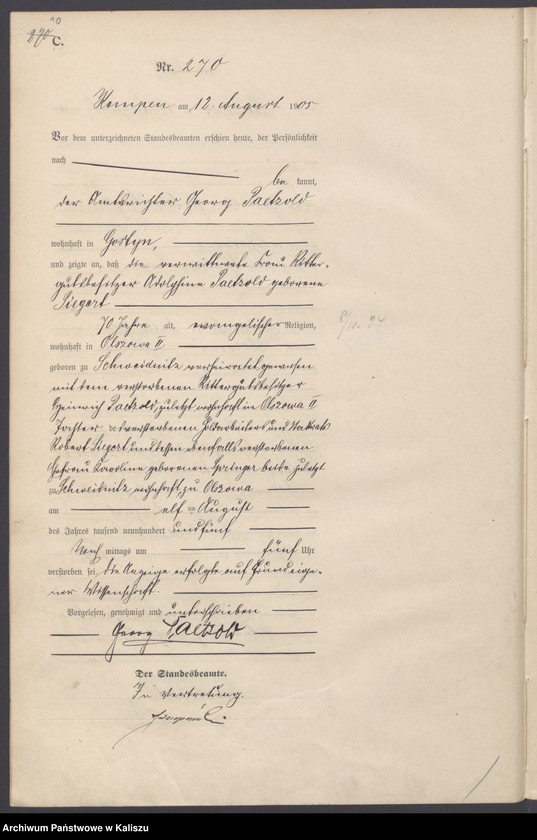 270
C.
Nr. 270
Kempen am 12. August 1905
Vor dem unterzeichneten Standesbeamten erschien heute, der Persönlichkeit
nach
be kannt,
der Amtsrichter Georg Paetzold
wohnhaft in Gostyn,
und zeigte an, daß die verwittwete Frau Ritter-
gutsbesitzer Adolphine Paetzold geborene
Siegert
70 Jahre alt, evangelischer Religion,
wohnhaft in Olszowa II
geboren zu Schweidnitz, verheirathet gewesen
mit dem verstorbenen Rittergutsbesitzer
Heinrich Paetzold, zuletzt wohnhaft in Olszowa II
Tochter des verstorbenen und
Robert Siegert und dessen ebenfalls verstorbenen
Ehefrau Karoline geborenen Springer beide zuletzt
in Schweidnitz wohnhaft, zu Olszowa
am elf ten August
des Jahres tausend neunhundert und fünf
Nach mittags um fünf Uhr
verstorben sei. Die Anzeige erfolgte auf Grund eige-
ner Wissenschaft.
Vorgelesen, genehmigt und unterschrieben
Georg Paetzold
Der Standesbeamte.
In Vertretung.
Archiwum Państwowe w Kaliszu